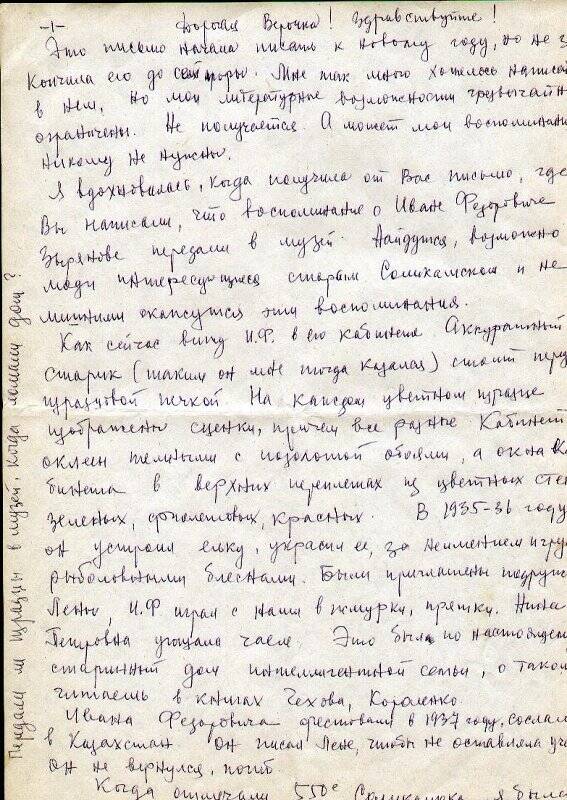 -1-
Дорогая Верочка! Здравствуйте!
Это письмо начала писать к новому году, но не за
кончила его до сей поры. Мне так много хотелось написа
в нем, но мои литературные возможности чрезвычайн
ограничены. Не получается. А может мои воспоминан
никому не нужны.
Я вдохновилась, когда получила от Вас письмо, где
Вы написали, что воспоминание о Иване Федоровиче
Зырянове передали в музей. Найдутся, возможно
люди интересующиеся старым Соликамском и не
лишними окажутся эти воспоминания.
Как сейчас вижу И.Ф. в его кабинете. Аккуратный
старик (таким он мне тогда казался) стоит пред
изразцовой печкой. На каждом цветном изразце
изображены сценки, причем все разные. Кабинет
оклеен темными с позолотой обоями, а окна ка
бинета в верхних переплетах из цветных стек
зеленых, фиолетовых, красных. В 1935-36 году
он устроил елку, украсил ее, за неимением игру
рыболовными блеснами. Были приглашены подруги
Лены, И.Ф играл с нами в жмурки, прятки. Нина
Петровна угощала чаем. Это был по настоящем
старинный дом интеллигентной семьи, о такой
читаешь в книгах Чехова, Короленко.
Ивана Федоровича арестовали в 1937 году, сослал
в Казахстан он писал Лене, чтобы не оставляла уч
он не вернулся, погиб
Когда отмечали 550е Соликамска, я была
Передали ли изразцы в музей, когда ломали дом?